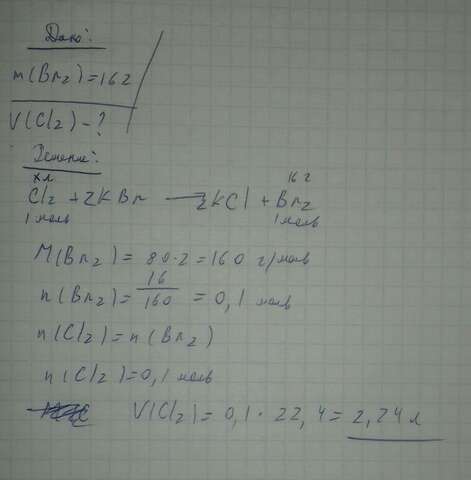 Дано:
m(Br₂)=16г
V(Cl₂)-?
Решение:
x л 16 г
Cl₂ + 2KBr → 2KCl + Br₂
1 моль 1 моль
M(Br₂) = 80·2 = 160 г/моль
n(Br₂) = 16/160 = 0,1 моль
n(Cl₂) = n(Br₂)
n(Cl₂) = 0,1 моль
V(Cl₂) = 0,1 · 22,4 = 2,24 л